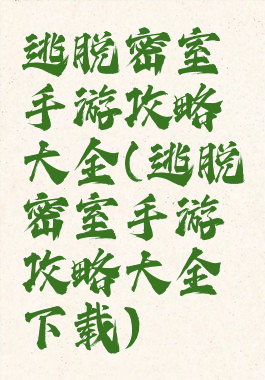 逃脱密室
手游攻略
大全(逃脱
密室手游
攻略大全
下载)